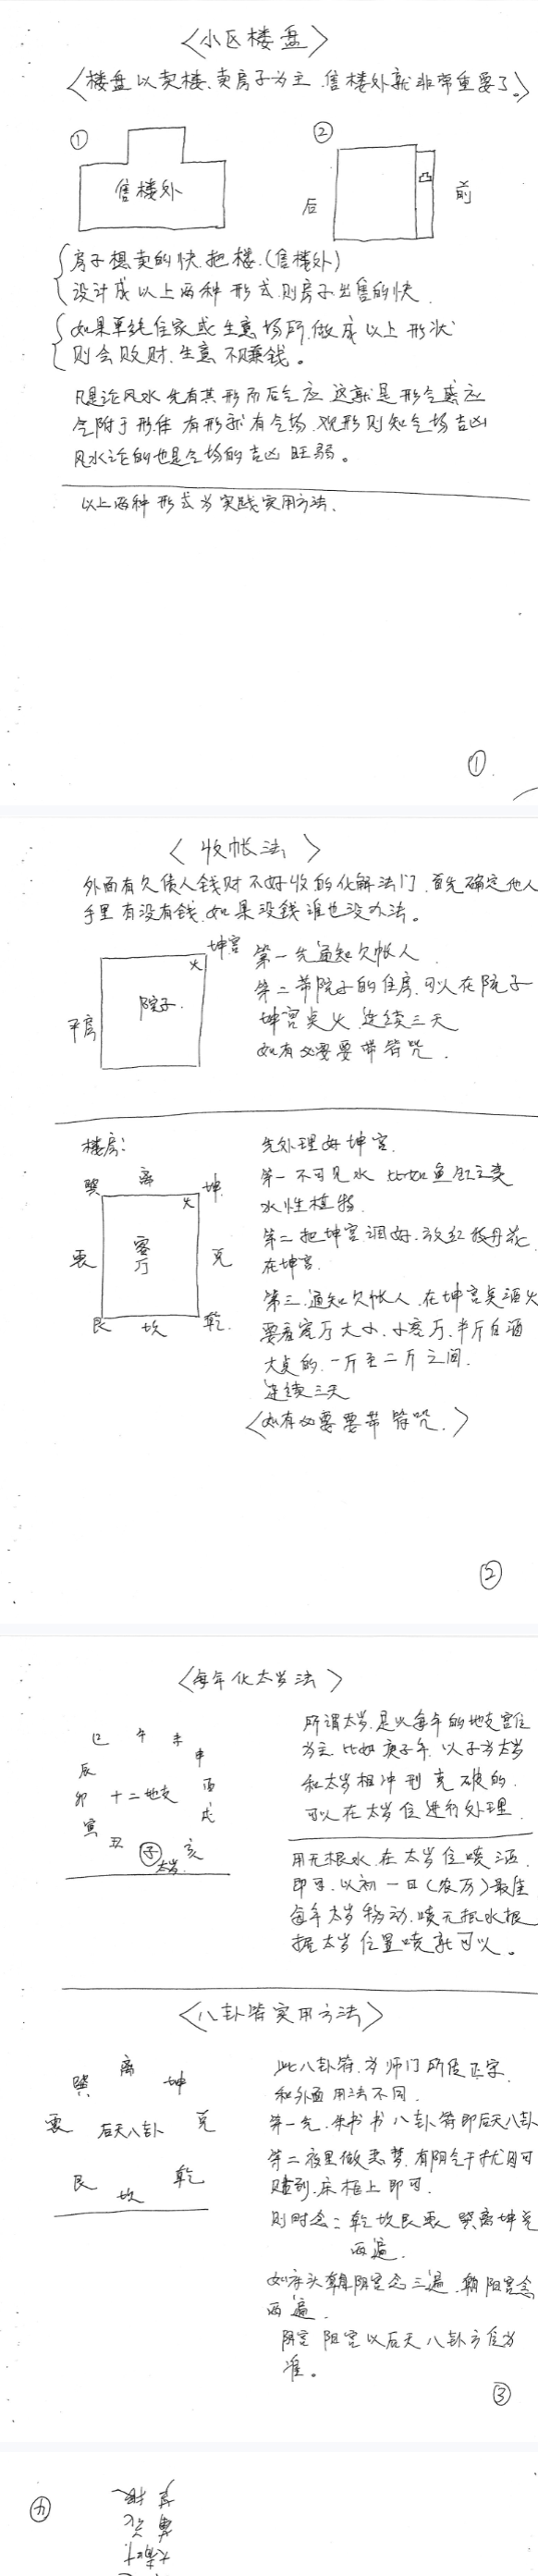 〈小区楼盘〉
〈楼盘以卖楼、卖房子为主、售楼处就非常重要了。〉
① ②
售楼处
后 凸 前
房子想卖的快、把楼、(售楼处)
设计成以上两种形式、则房子出售的快、
如果单纯住家或生意场所、做成以上形状
则会败财、生意不赚钱。
凡是论风水 先有其形而后气应 这就是形气感应
气附于形体 有形就有气场、观形则知气场吉凶
风水论的也是气场的吉凶旺弱。
以上两种形式为实践实用方法、
①
〈收帐法〉
外面有欠债人钱财不好收的化解法门、首先确定他人
手里有没有钱、如果没钱谁也没办法。
坤宫
火
院子
平房
第一先通知欠帐人
第二带院子的住房、可以在院子
坤宫点火、连续三天
如有必要要带符咒、
楼房:
巽 离 坤
火
震 客厅 兑
艮 坎 乾
先处理好坤宫、
第一不可见水 比如鱼缸之类
水性植物、
第二把坤宫调好、放红牡丹花
在坤宫、
第三、通知欠帐人、在坤宫点酒火
要看客厅大小、小客厅、半斤白酒
大点的、一斤至二斤之间、
连续三天
〈如有必要要带符咒、〉
②
〈每年化太岁法〉
巳 午 未
辰 申
卯 十二地支 酉
寅 戌
丑 子 亥
太岁
所谓太岁、是以每年的地支宫位
为主 比如庚子年、以子为太岁
和太岁相冲刑克破的、
可以在太岁位进行处理、
用无根水、在太岁位喷洒、
即可、以初一日(农历)最佳
每年太岁移动、喷无根水根
据太岁位置喷就可以。
〈八卦符实用方法〉
巽 离 坤
震 后天八卦 兑
艮 坎 乾
此八卦符、为师门所传正宗、
和外面用法不同、
第一先、朱书书八卦符即后天八卦
第二夜里做恶梦、有阴气干扰用可
贴到、床栢上即可、
则时念:乾坎艮震 巽离坤兑
两遍、
如床头朝阴宫念三遍、朝阳宫念
两遍、
阴宫 阳宫以后天八卦方位为
准。
③
④